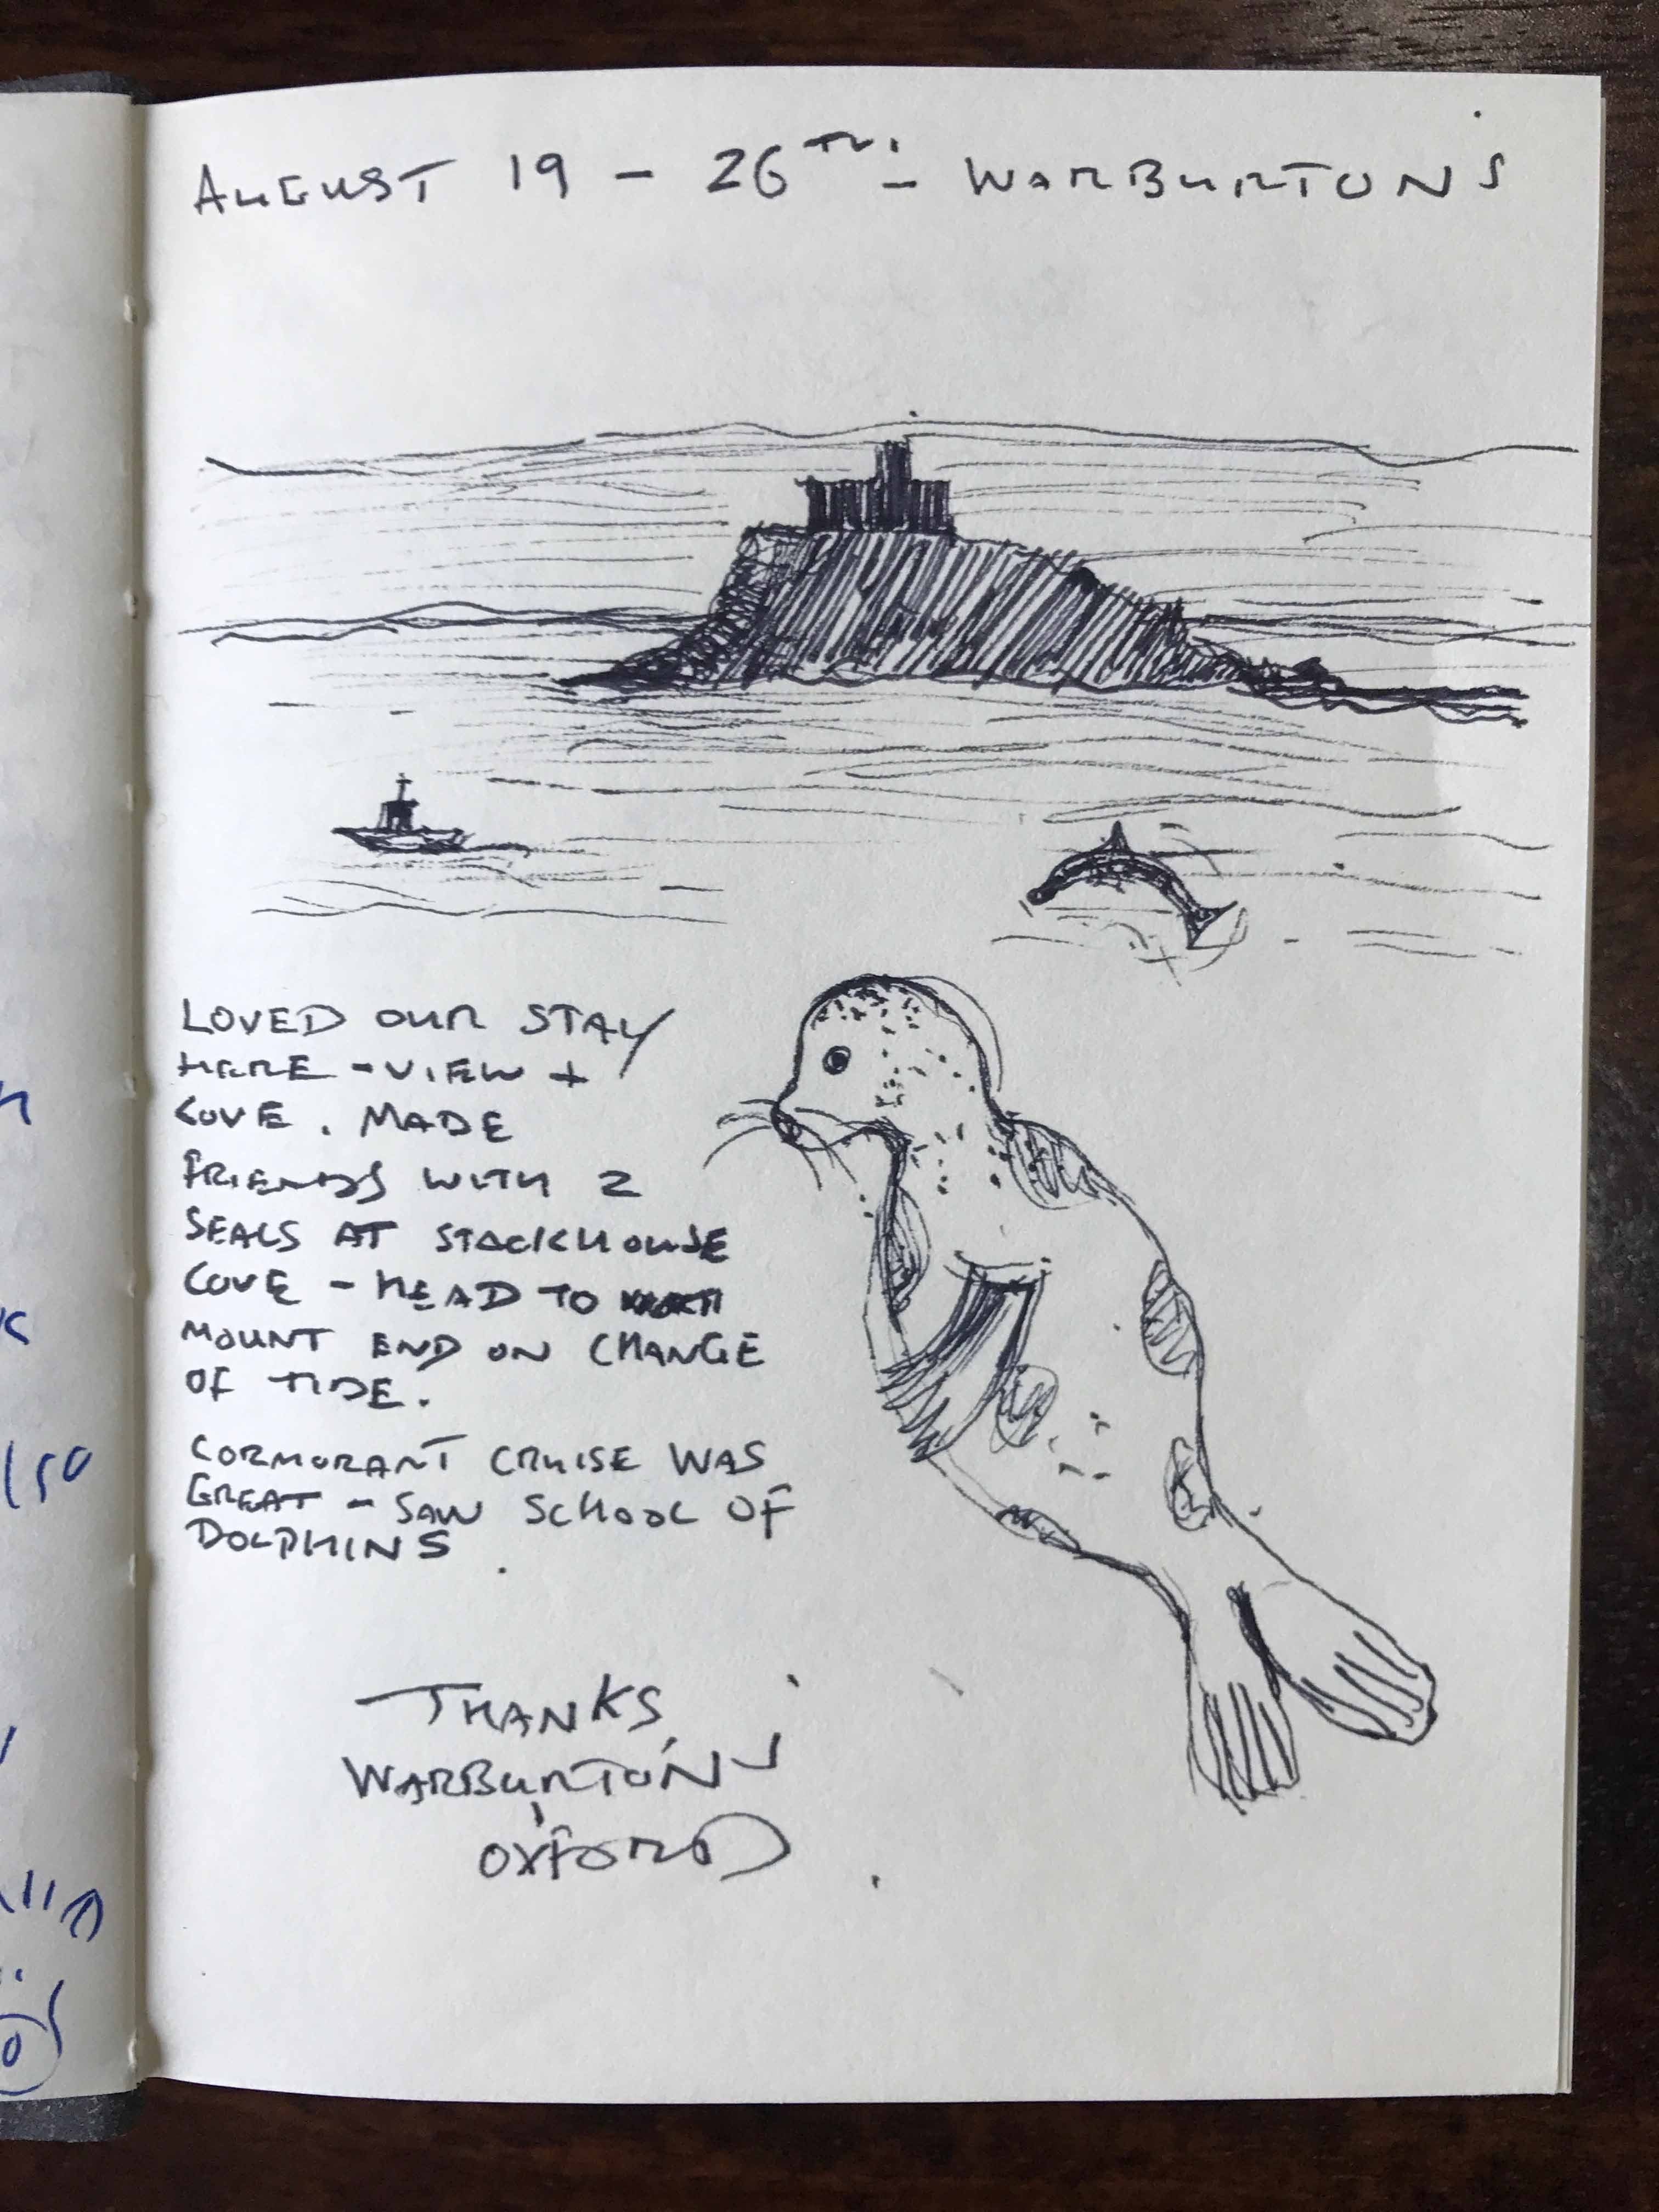 AUGUST 19 - 26TH. - WARBURTONS
LOVED OUR STAY
HERE - VIEW +
COVE. MADE
FRIENDS WITH 2
SEALS AT STACKHOUSE
COVE - HEAD TO
MOUNT END ON CHANGE
OF TIDE.
CORMORANT CRUISE WAS
GREAT - SAW SCHOOL OF
DOLPHINS.
THANKS,
WARBURTONS
OXFORD.